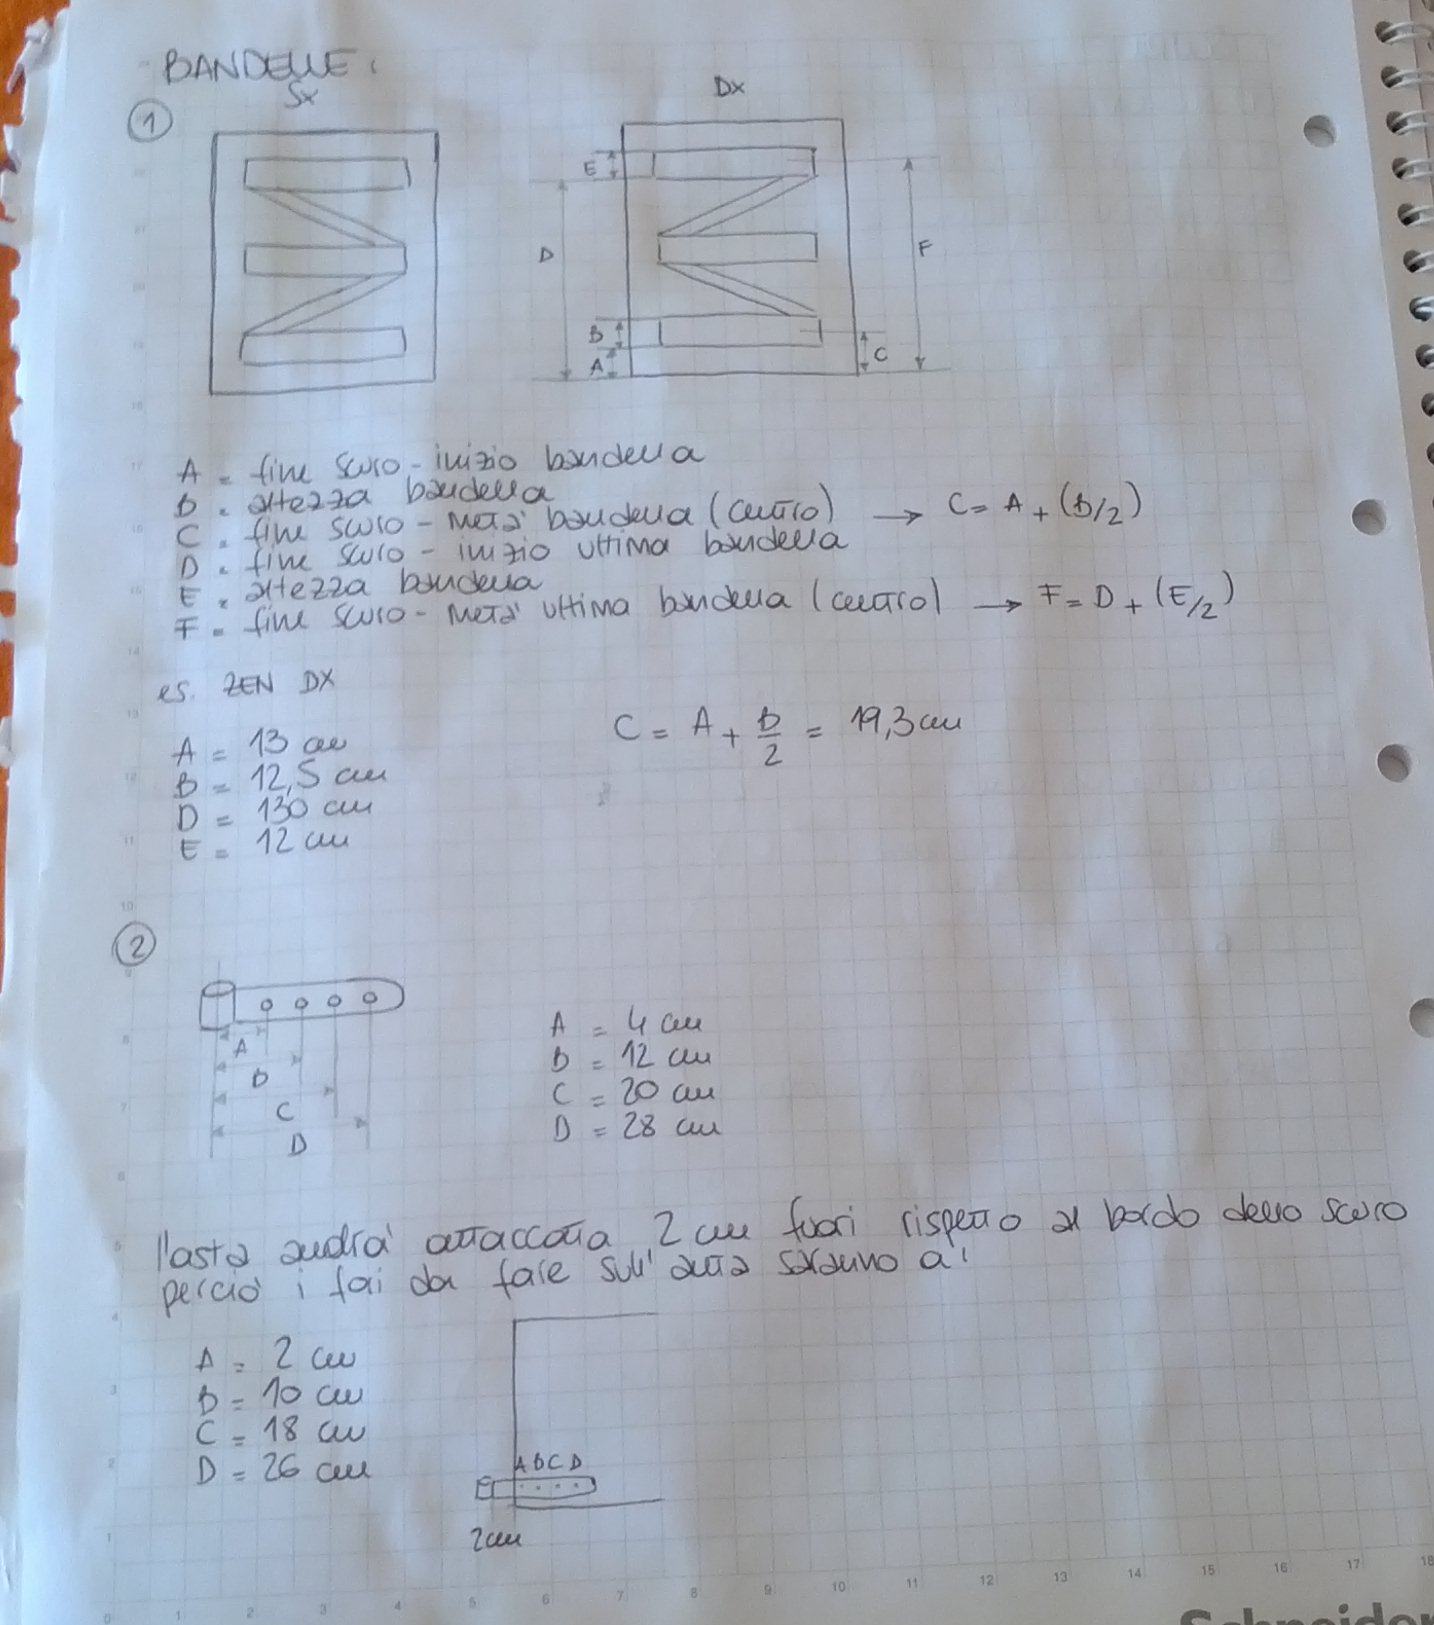 BANDELLE:
1
Sx
Dx
E
D
B
A
F
C
A = fine scuro - inizio bandella
B = altezza bandella
C = fine scuro - metà bandella (centro) → C = A + (B/2)
D = fine scuro - inizio ultima bandella
E = altezza bandella
F = fine scuro - metà ultima bandella (centro) → F = D + (E/2)
es. ZEN DX
A = 13 cm
B = 12,5 cm
D = 130 cm
E = 12 cm
C = A + B/2 = 19,3 cm
2
A
B
C
D
A = 4 cm
B = 12 cm
C = 20 cm
D = 28 cm
l'asta andrà attaccata 2 cm fuori rispetto al bordo dello scuro
perciò i fori da fare sull'anta saranno a:
A = 2 cm
B = 10 cm
C = 18 cm
D = 26 cm
A B C D
2 cm
0 1 2 3 4 5 6 7 8 9 10 11 12 13 14 15 16 17 18
Schneider